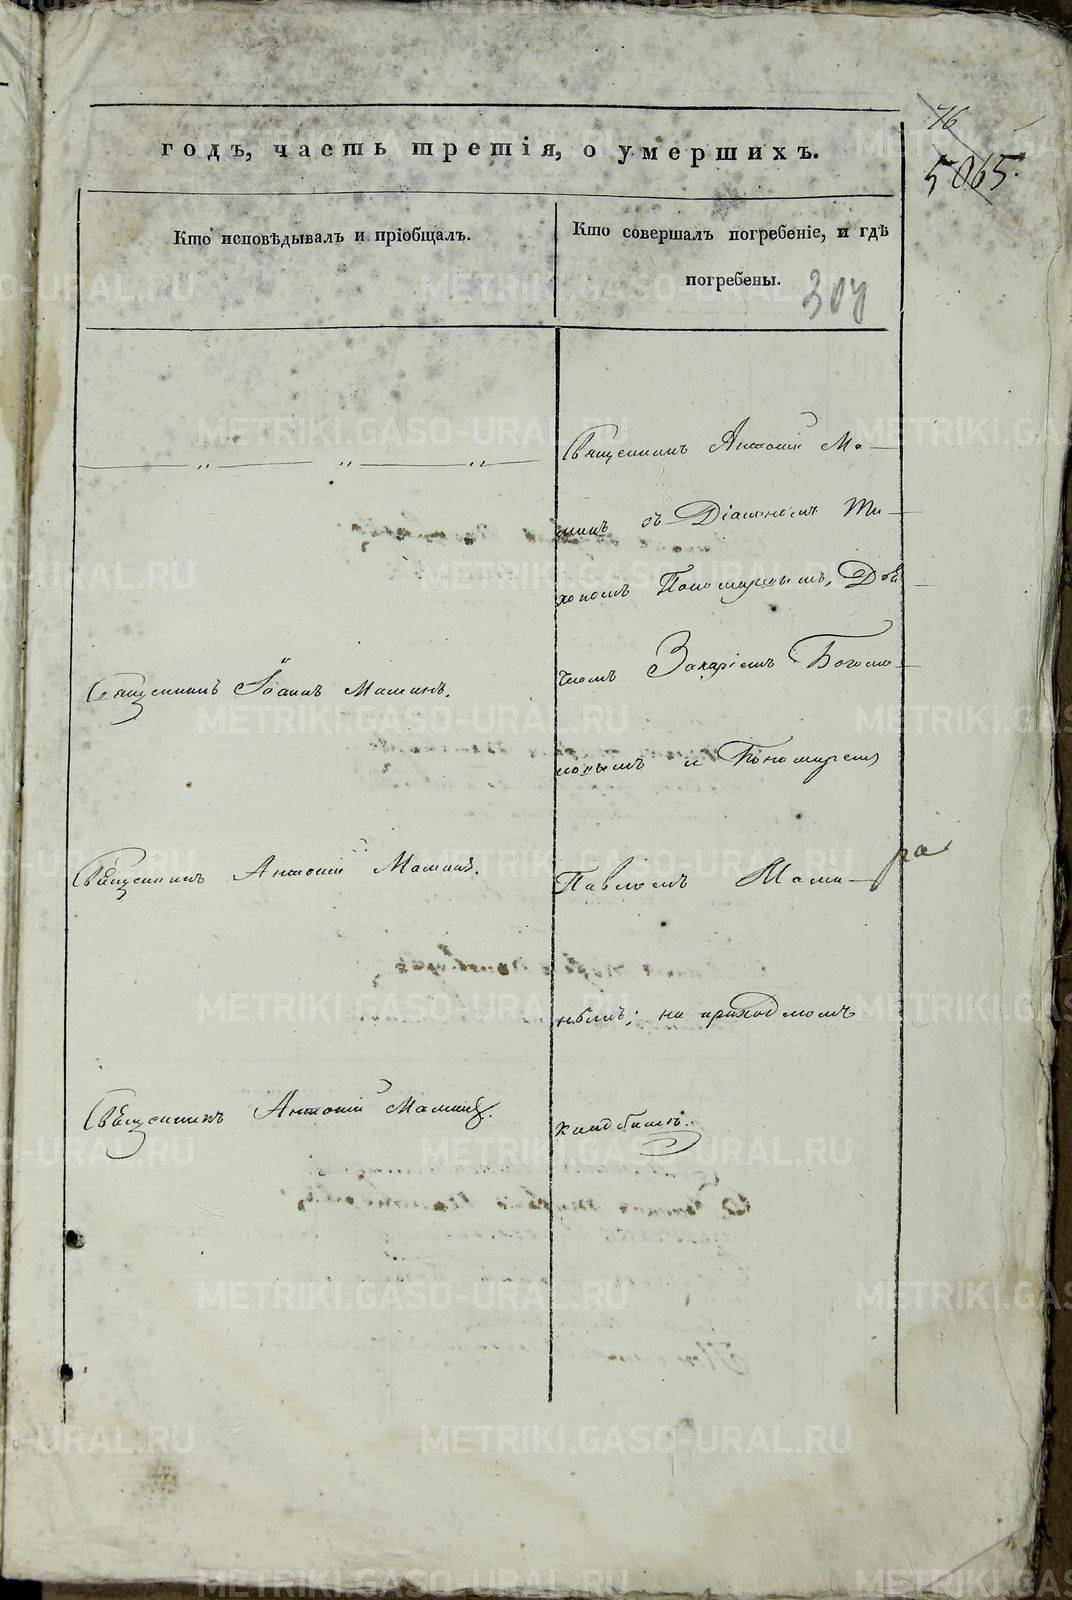 76
5065.
годъ, часть третія, о умершихъ.
Кто исповѣдывалъ и пріобщалъ.
Кто совершалъ погребеніе, и гдѣ
погребены.
307
Священникъ Антоній Ма-
минъ съ Діакономъ Ти-
хономъ Пономаревымъ, Дья
чкомъ Захаріемъ Богомо-
ловымъ и Пономаремъ
Павломъ
нѣмъ; на приходскомъ
кладбищѣ.
Священникъ Іоаннъ Маминъ.
Священникъ Антоній Маминъ.
Священникъ Антоній Маминъ.
METRIKI.GASO-URAL.RU